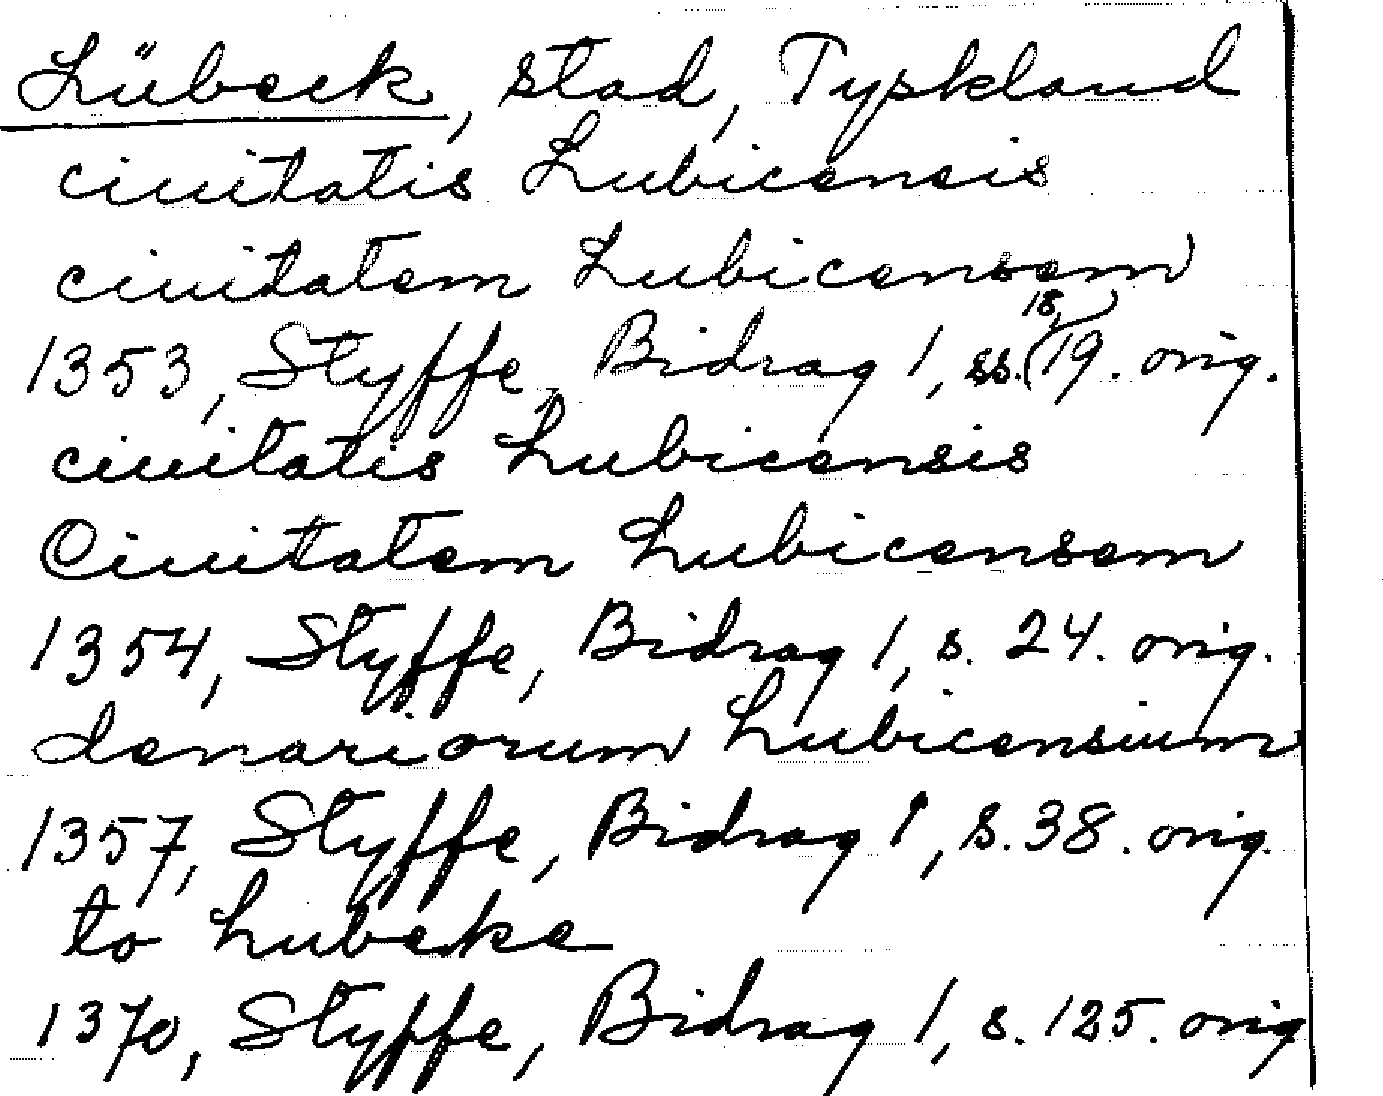 Lübeck, stad, Tyskland
ciuitatis Lubicensis
ciuitatem Lubicensem
1353, Styffe, Bidrag 1, ss. 18, 19. orig.
ciuitatis Lubicensis
Ciuitatem Lubicensem
1354, Styffe, Bidrag 1, s. 24. orig.
denariorum Lubicensium
1357, Styffe, Bidrag 1, s. 38. orig.
to Lubeke
1370, Styffe, Bidrag 1, s. 125. orig